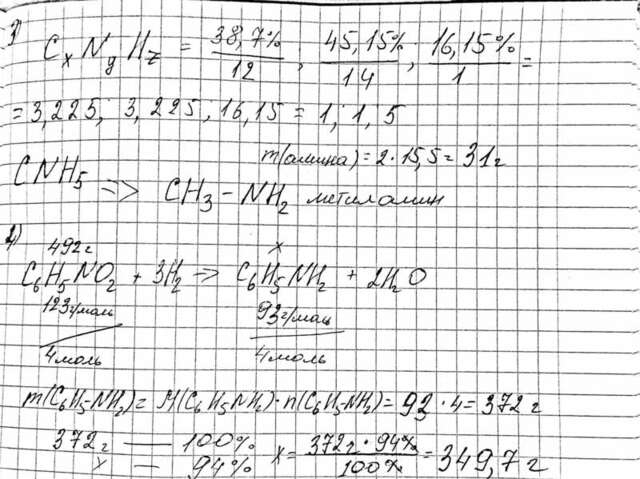 3)
CₓNᵧH_z = 38,7%/12 ; 45,15%/14 ; 16,15%/1 =
= 3,225; 3,225; 16,15 = 1; 1, 5
m(амина) = 2 · 15,5 = 31г
CNH₅ => CH₃ – NH₂ метиламин
2)
492г x
C₆H₅NO₂ + 3H₂ → C₆H₅NH₂ + 2H₂O
123г/моль 93г/моль
4моль 4моль
m(C₆H₅-NH₂) = M(C₆H₅NH₂) · n(C₆H₅-NH₂) = 93 · 4 = 372 г
372г — 100%
x — 94% x = 372г · 94%/100% = 349,7 г